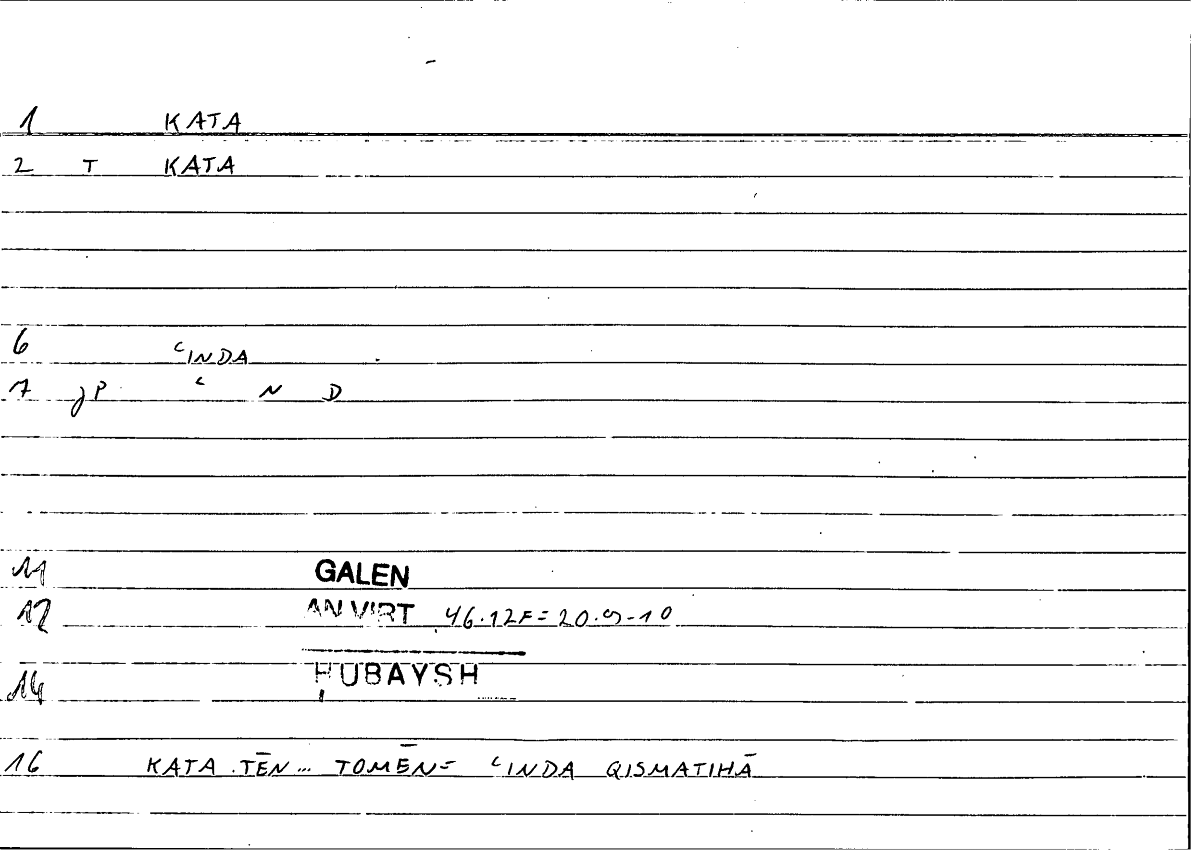 1 KATA
2 T KATA
6 ʿINDA
7 jP ʿ N D
11 GALEN
12 AN VIRT 46.12F=20.9-10
14 ḤUBAYSH
16 KATA TĒN... TOMĒN= ʿINDA QISMATIHĀ